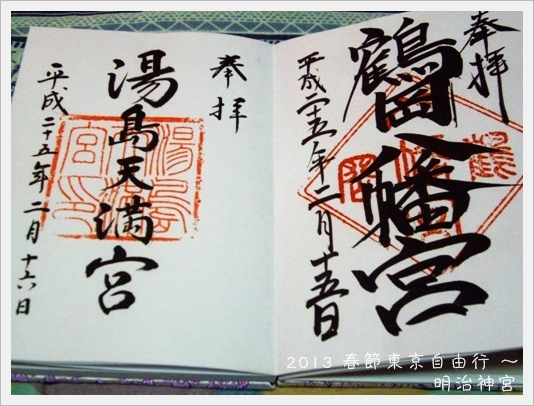 奉拝
鶴岡八幡宮
平成二十五年二月十五日
奉拝
湯島天満宮
平成二十五年二月十六日
2013 春節東京自由行 ～
明治神宮